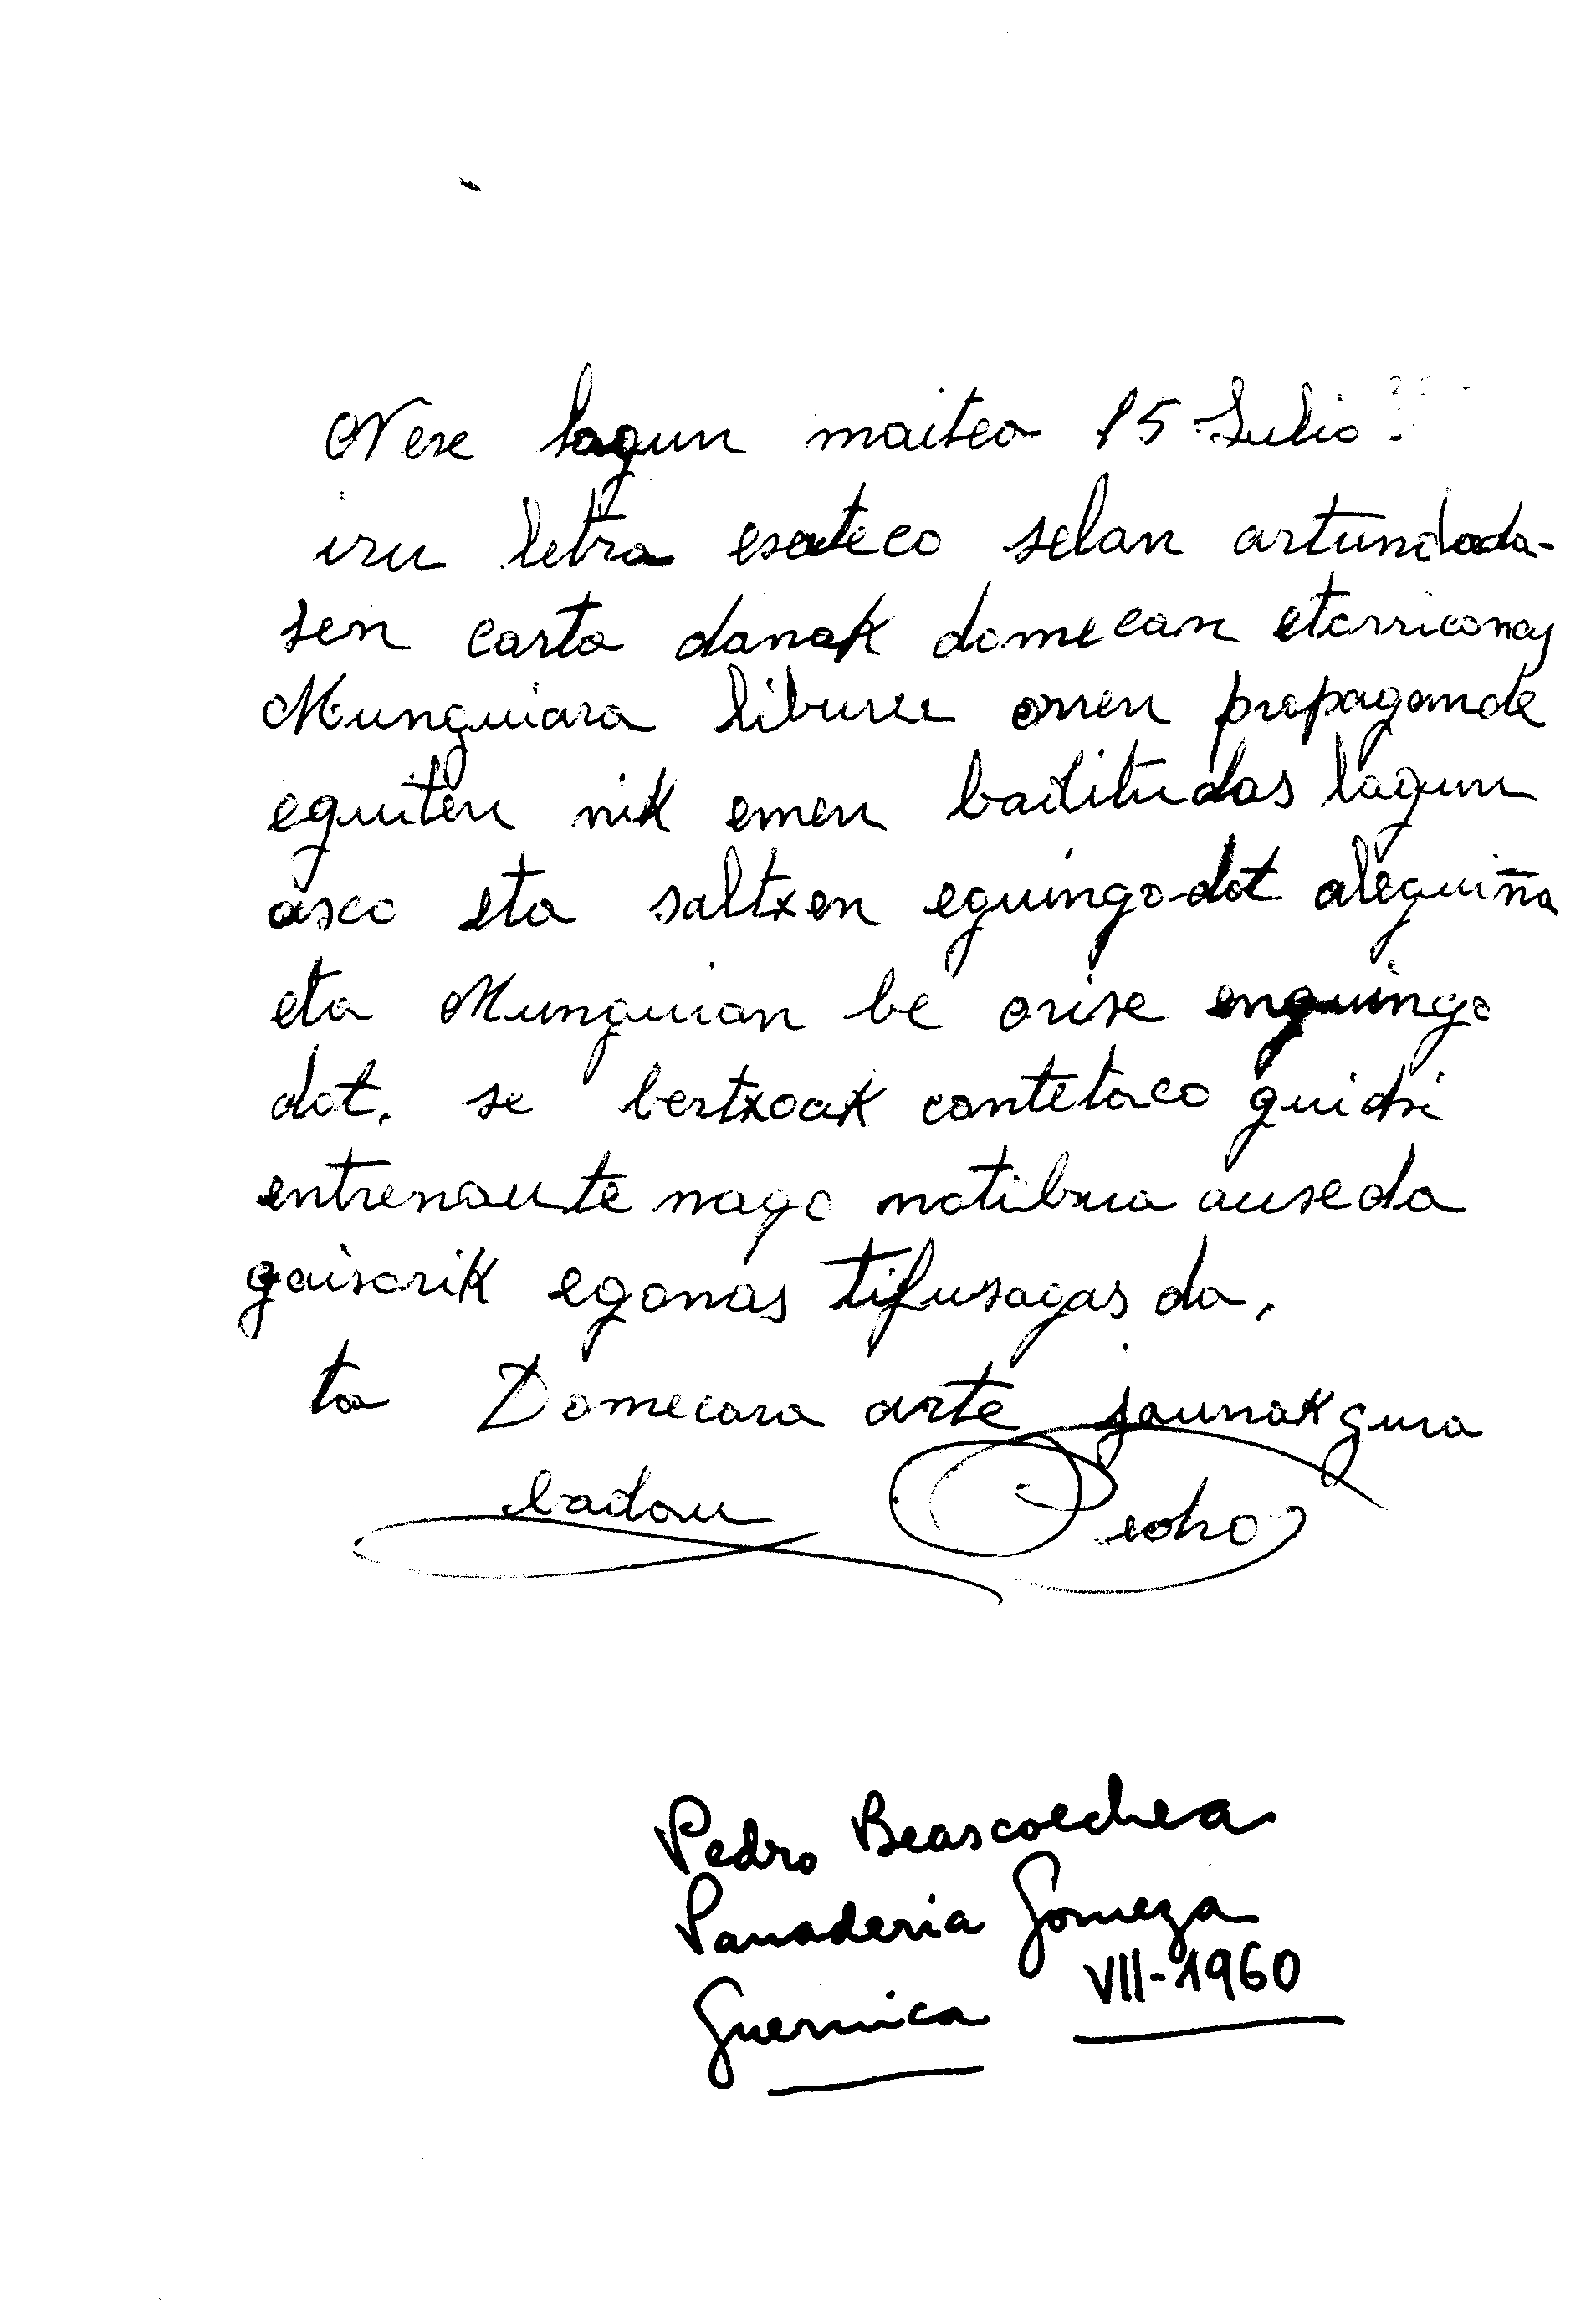 Nere lagun maitea 15 Julio
iru letra esateco selan artundoda-
sen carta danak domecan etorriconas
Munguiara liburu onen propagande
eguiten nik emen baditudas lagun
asco eta saltxen eguingo-dot aleguiña
eta Munguian be orise enguingo
dot. se bertxoak contetaco guichi
entrenaute nago notibua ause da
gaisorik egonas tifusagas da,
ta Domecara arte jaunak gura
badau Pedro
Pedro Beascoechea
Panaderia Gomeza
Guernica VII-1960